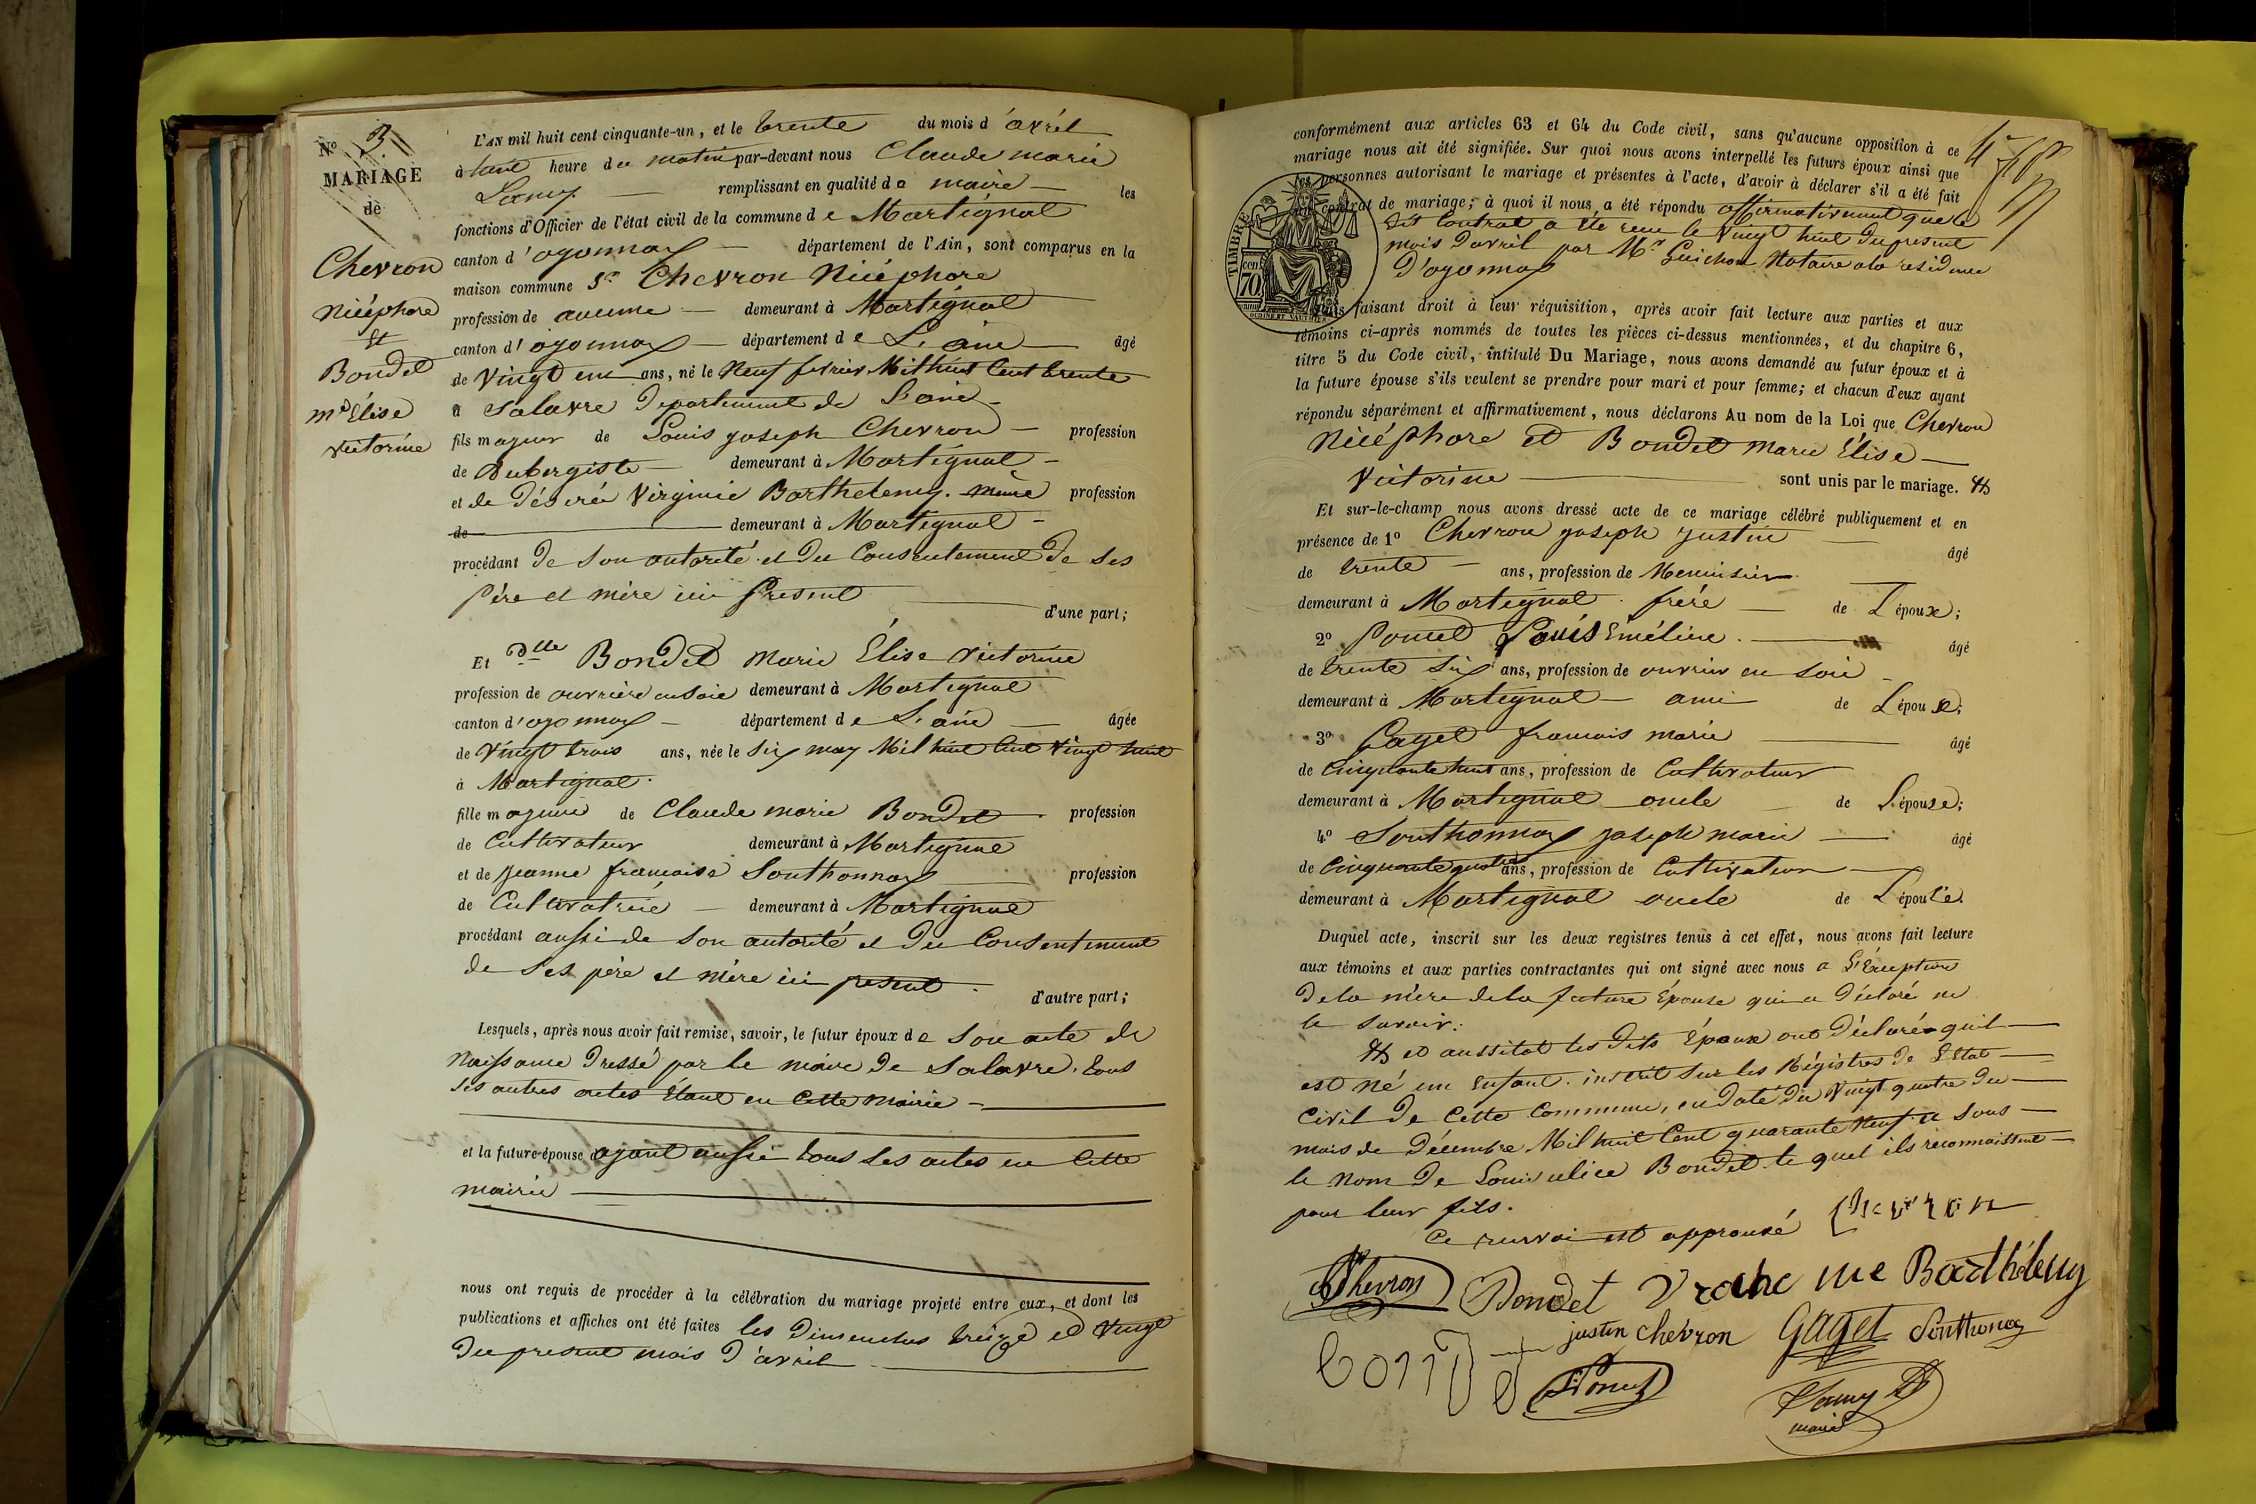 No 3
MARIAGE
de
Chevron
Nicéphore
Et
Bondet
Mie Élise
Victorine
L'AN mil huit cent cinquante-un, et le trente du mois d'avril
à heure du matin par-devant nous Claude marie
Lamy remplissant en qualité de maire les
fonctions d'Officier de l'état civil de la commune de Martignat
canton d'oyonnax département de l'Ain, sont comparus en la
maison commune Sr Chevron Nicéphore
profession de aucune demeurant à Martignat
canton d'oyonnax département de L'ain âgé
de Vingt un ans, né le Neuf fevrier Mil huit Cent trente
à Salavre Departement de L'ain
fils majeur de Louis joseph Chevron profession
de Aubergiste demeurant à Martignat
et de Désirée Virginie Barthelemy. profession
de demeurant à Martignat
procédant de son autorité et du Consentement de ses
père et mère ici present
d'une part;
Et dlle Bondet Marie Élise Victorine
profession de ouvrière en soie demeurant à Martignat
canton d'oyonnax département de L'ain âgée
de Vingt trois ans, née le six may Mil huit Cent Vingt huit
à Martignat.
fille majeure de Claude marie Bondet profession
de Cultivateur demeurant à Martignat
et de Jeanne francoise Southonnax profession
de Cultivatrice demeurant à Martignat
procédant aussi de son autorité et du Consentement
de ses père et mère ici present.
d'autre part;
Lesquels, après nous avoir fait remise, savoir, le futur époux de son acte de
Naissance Dressé par le maire de Salavre. tous
ses autres actes étant en Cette Mairie
et la future épouse ayant aussi tous ses actes en Cette
mairie
nous ont requis de procéder à la célébration du mariage projeté entre eux, et dont les
publications et affiches ont été faites les Dimenches treize et Vingt
Du present mois D'avril
conformément aux articles 63 et 64 du Code civil, sans qu'aucune opposition à ce
mariage nous ait été signifiée. Sur quoi nous avons interpellé les futurs époux ainsi que
les personnes autorisant le mariage et présentes à l'acte, d'avoir à déclarer s'il a été fait
contrat de mariage; à quoi il nous a été répondu affirmativement que le
dit Contrat a été reçu le Vingt huit du present
mois D'avril par Me Guichon Notaire a la residence
D'oyonnax
TIMBRE
cen
70
OUDINE ET VAUTHIER
Puis faisant droit à leur réquisition, après avoir fait lecture aux parties et aux
témoins ci-après nommés de toutes les pièces ci-dessus mentionnées, et du chapitre 6,
titre 5 du Code civil, intitulé Du Mariage, nous avons demandé au futur époux et à
la future épouse s'ils veulent se prendre pour mari et pour femme; et chacun d'eux ayant
répondu séparément et affirmativement, nous déclarons Au nom de la Loi que Chevron
Nicéphore et Bondet Marie Élise
Victorine sont unis par le mariage.
Et sur-le-champ nous avons dressé acte de ce mariage célébré publiquement et en
présence de 1o Chevron joseph justin âgé
de trente ans, profession de Menuisier
demeurant à Martignat. frère de L'époux;
2o Ponced Louis Eméline. âgé
de trente Six ans, profession de ouvrier en soie
demeurant à Martignat ami de L'époux;
3o Gaget francois marie âgé
de Cinquante huit ans, profession de Cultivateur
demeurant à Martignat oncle de L'épouse;
4o Southonnax joseph marie âgé
de Cinquante quatre ans, profession de Cultivateur
demeurant à Martignat oncle de L'épouse.
Duquel acte, inscrit sur les deux registres tenus à cet effet, nous avons fait lecture
aux témoins et aux parties contractantes qui ont signé avec nous a L'Exception
De la mère de la future Épouse qui a Déclaré ne
le savoir.
et aussitot les dits Époux ont Déclaré quil
est né un Enfant. inscrit sur les Régistres de L'Etat
Civil De Cette Commune, en Date du Vingt quatre du
mois de Décembre Mil huit Cent quarante Neuf et sous
le Nom De Louis Bondet le quel ils reconnaissent
pour leur fils.
Ce renvoi est approuvé Chevron
Chevron Bondet Barthélemy
justin chevron Gaget Southonax
bondet Ponced Lamy
maire